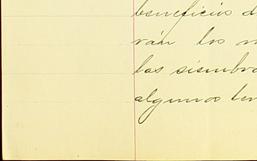 beneficios d
rán los
las siembra
algunos